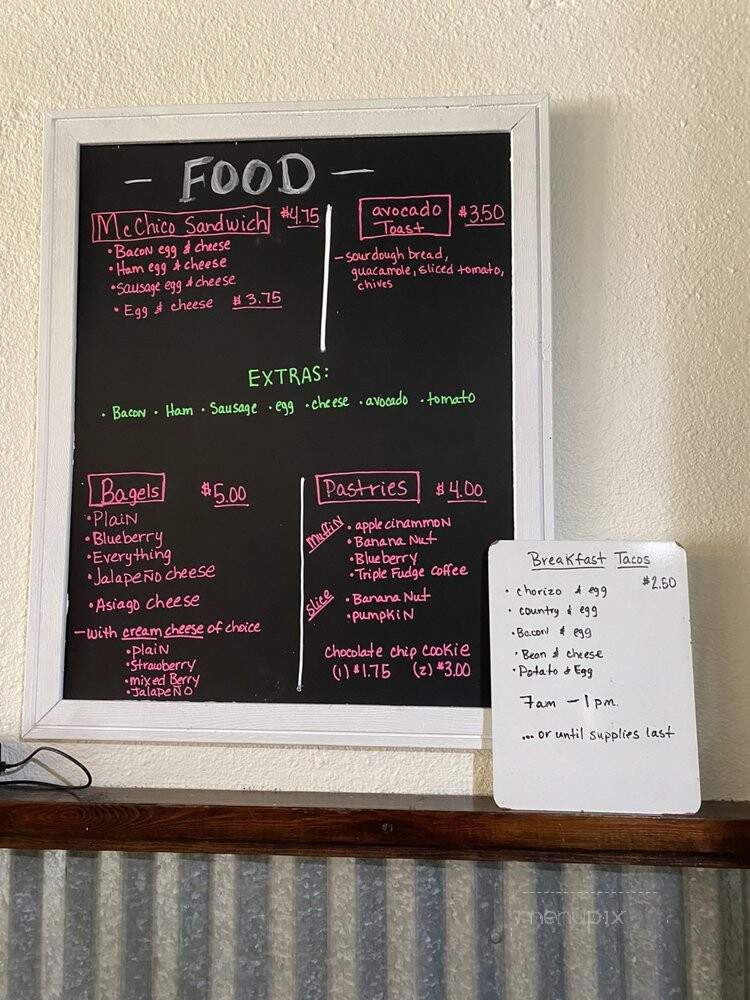 - FOOD -
McChico Sandwich $4.75
• Bacon egg & cheese
• Ham egg & cheese
• Sausage egg & cheese
• Egg & cheese $3.75
avocado Toast $3.50
- sourdough bread,
guacamole, sliced tomato,
chives
EXTRAS:
• Bacon • Ham • Sausage • egg • cheese • avocado • tomato
Bagels $5.00
• Plain
• Blueberry
• Everything
• Jalapeño cheese
• Asiago cheese
- with cream cheese of choice
• plain
• strawberry
• mixed Berry
• Jalapeño
Pastries $4.00
Muffin
• apple cinammon
• Banana Nut
• Blueberry
• Triple Fudge coffee
slice
• Banana Nut
• pumpkin
chocolate chip cookie
(1) $1.75 (2) $3.00
Breakfast Tacos
$2.50
• chorizo & egg
• country & egg
• Bacon & egg
• Bean & cheese
• Potato & Egg
7am - 1pm.
... or until supplies last
menupix